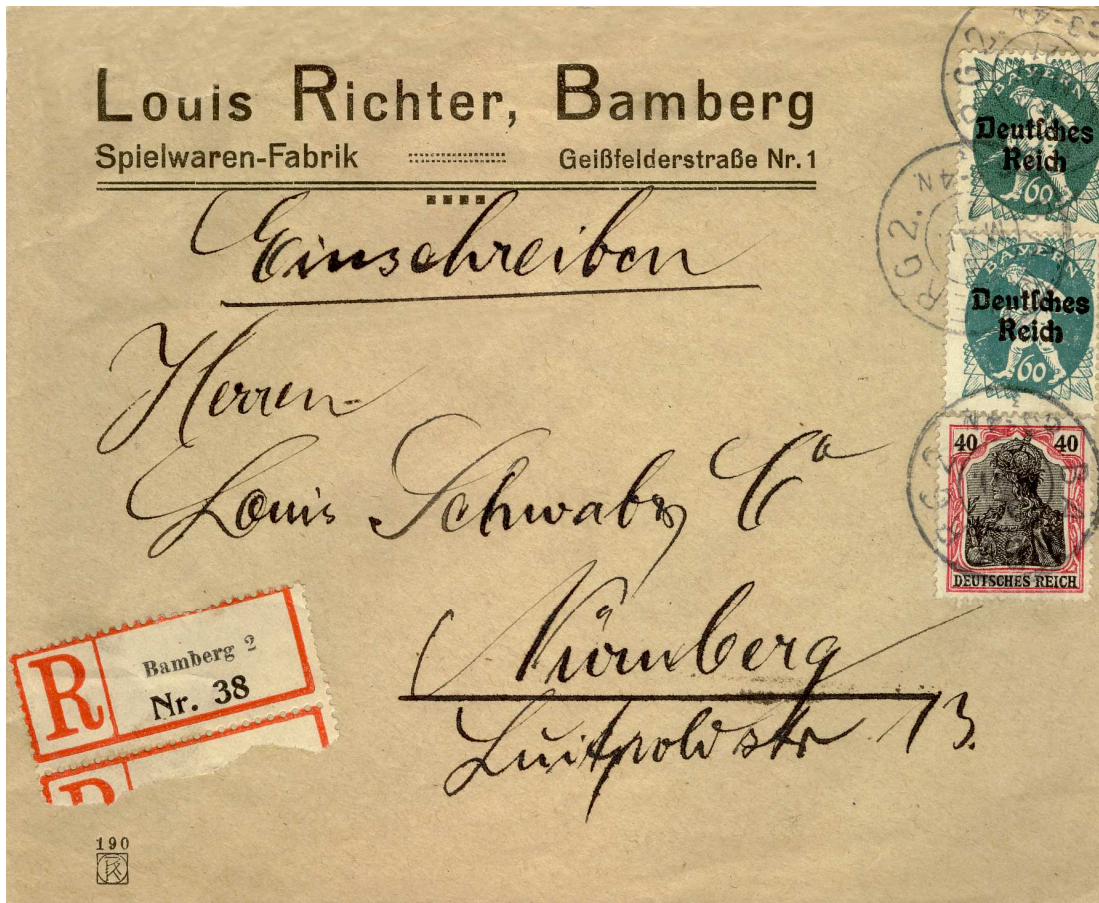 Louis Richter, Bamberg
Spielwaren-Fabrik Geißfelderstraße Nr. 1
Einschreiben
Herren
Louis Schwab & Cº
Nürnberg
Luitpoldstr 13.
BAYERN
Deutsches
Reich
60
BAYERN
Deutsches
Reich
60
40 40
DEUTSCHES REICH
R Bamberg 2
Nr. 38
R
190